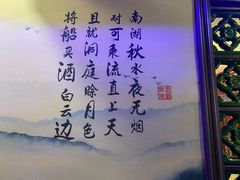 南湖秋水夜无烟
耐可乘流直上天
且就洞庭赊月色
将船买酒白云边